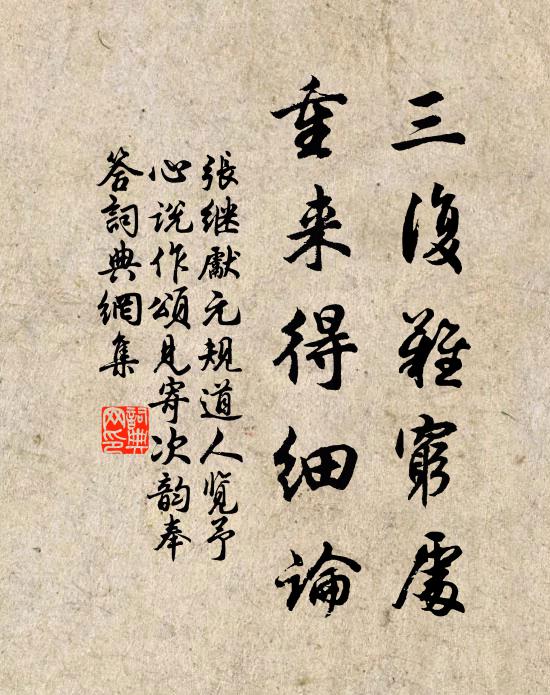 三復難窮處
重来得細論
張继獻元規道人览予
心说作頌見寄次韵奉
答詞典網集
詞典网印